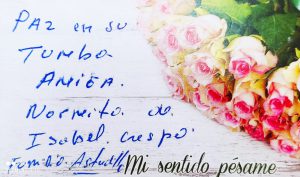 PAZ en su
Tumba
Amiga.
Normita de
Isabel crespo
Familia. Astudillo
Mi sentido pésame